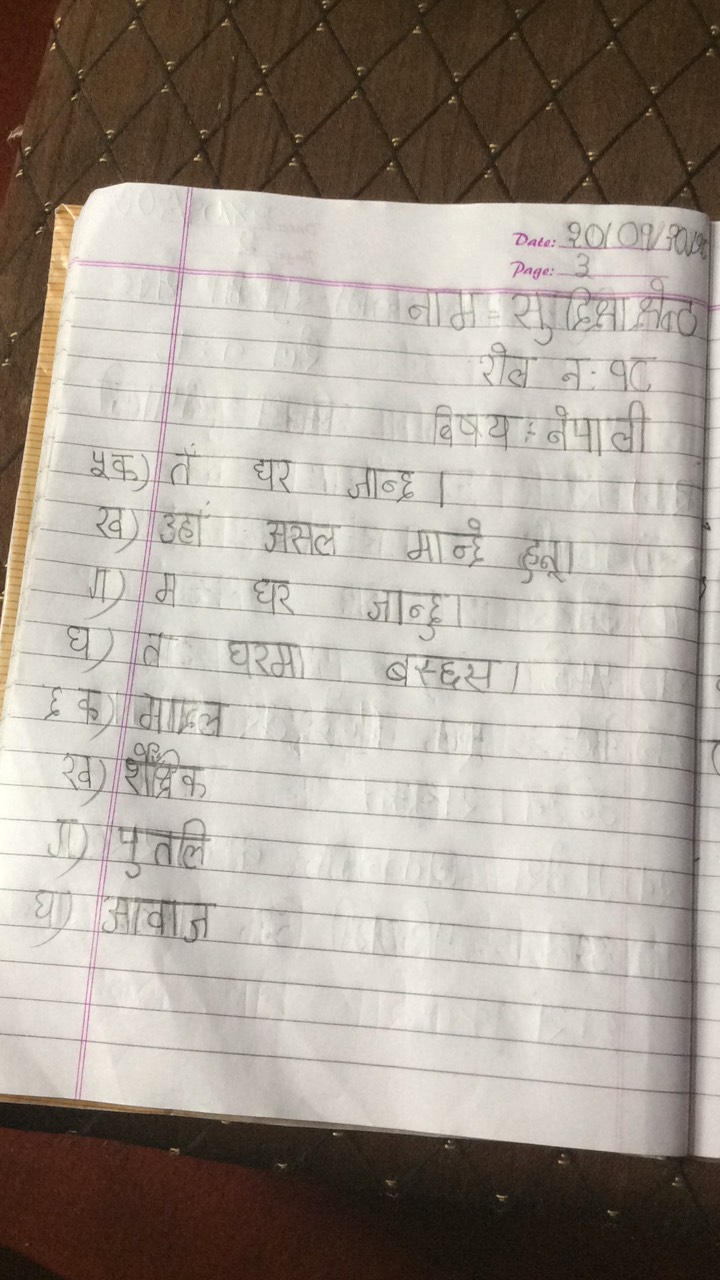 Date: २०/०१/२०७८
Page: 3
नाम = सुदिक्षा श्रेष्ठ
रोल न: १८
बिषय : नेपाली
५क) तँ घर जान्छ।
ख) उहाँ असल मान्छे हुनू।
ग) म घर जान्छु।
घ) त घरमा बस्छस।
६ क) मादल
ख)
ग) पुतलि
घ) आवाज